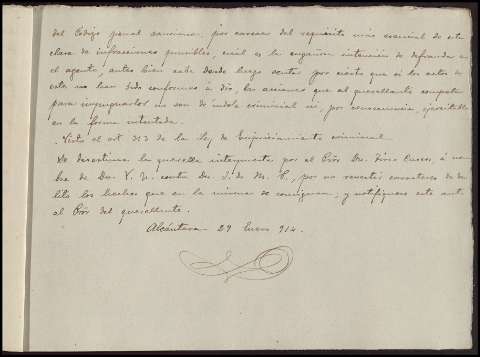 del Código penal sanciona, por carecer del requisito más esencial de esta
clase de infracciones punibles, cual es la engañosa intención de defraudar en
el agente, antes bien cabe desde luego sentar por cierto que si los actos de
esta no han sido conformes á dro, las acciones que al querellante competa
para impugnarlos no son de índole criminal ni, por consecuencia, ejercitables
en la forma intentada.
Visto el art. 313 de la Ley de Enjuiciamiento criminal.
Se desestima la querella interpuesta por el Prór Dn. á nom
bre de Dn. V. V. contra Dn. J. de M. C., por no revestir caracteres de de
lito los hechos que en la misma se consignan, y notifíquese este auto
al Prór del querellante.
Alcántara 29 Enero 914.